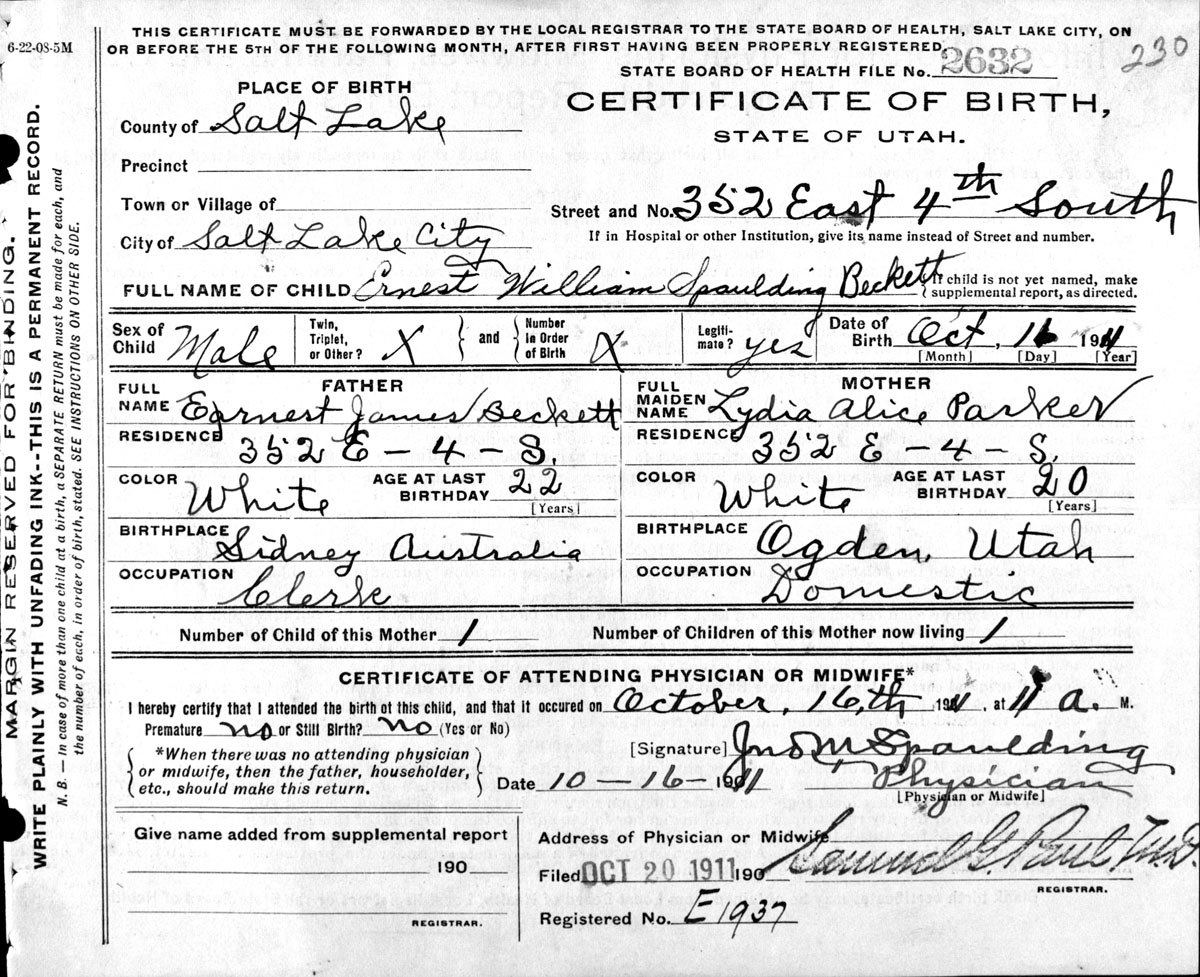 6-22-08-5M
THIS CERTIFICATE MUST BE FORWARDED BY THE LOCAL REGISTRAR TO THE STATE BOARD OF HEALTH, SALT LAKE CITY, ON
OR BEFORE THE 5TH OF THE FOLLOWING MONTH, AFTER FIRST HAVING BEEN PROPERLY REGISTERED.
230
STATE BOARD OF HEALTH FILE No. 2632
CERTIFICATE OF BIRTH,
STATE OF UTAH.
PLACE OF BIRTH
County of Salt Lake
Precinct
Town or Village of
Street and No. 352 East 4th South
City of Salt Lake City
If in Hospital or other Institution, give its name instead of Street and number.
FULL NAME OF CHILD Ernest William Spaulding Beckett
If child is not yet named, make
supplemental report, as directed.
Sex of Child Male
Twin, Triplet, or Other? X
and
Number in Order of Birth X
Legiti-mate? yes
Date of Birth Oct, 16 1911
[Month] [Day] [Year]
FATHER
FULL NAME Earnest James Beckett
RESIDENCE 352 E - 4 - S.
COLOR White
AGE AT LAST BIRTHDAY 22
[Years]
BIRTHPLACE Sidney Australia
OCCUPATION Clerk
MOTHER
FULL MAIDEN NAME Lydia Alice Parker
RESIDENCE 352 E 4 - S.
COLOR White
AGE AT LAST BIRTHDAY 20
[Years]
BIRTHPLACE Ogden, Utah
OCCUPATION Domestic
Number of Child of this Mother 1
Number of Children of this Mother now living 1
CERTIFICATE OF ATTENDING PHYSICIAN OR MIDWIFE*
I hereby certify that I attended the birth of this child, and that it occured on October, 16,th 1911, at 11 a. M.
Premature no or Still Birth? no (Yes or No)
*When there was no attending physician
or midwife, then the father, householder,
etc., should make this return.
[Signature] Jno M Spaulding
Date 10-16-1911
Physician
[Physician or Midwife]
Give name added from supplemental report
190
REGISTRAR.
Address of Physician or Midwife
Filed OCT 20 1911 190
Samuel G. Paul, M.D.
REGISTRAR.
Registered No. E 1937
MARGIN RESERVED FOR BINDING.
WRITE PLAINLY WITH UNFADING INK--THIS IS A PERMANENT RECORD.
N. B. — In case of more than one child at a birth, a SEPARATE RETURN must be made for each, and
the number of each, in order of birth, stated. SEE INSTRUCTIONS ON OTHER SIDE.